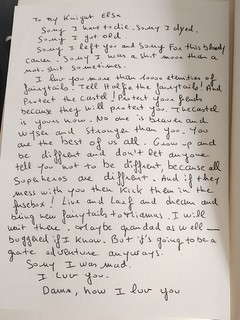 To my Knight Elsa
Sorry I hav to die. Sorry I dyed.
Sorry I got old.
Sorry I left you and Sorry For this bluudy
cancer. Sorry I was a shit more than a
not-shit sometimes.
I luv you more than 10000 eternities of
fairytails! Tell Halfie the fairytails! And
Protect the Castel! Protect your frends
because they will protect you. The Castel
is yours now. No one is braver and
wyser and stronger than you. You
are the best of us all. Grow up and
be diffrent and don't let anyone
tell you not to be diffrent, because all
Superheros are diffrent. And if they
mess with you then Kick them in the
fusebox! Live and Larf and dream and
bring new fairytails to Miamas. I will
wait there. Maybe grandad as well —
buggered if I know. But it's going to be a
grate adventure anyways.
Sorry I was mad.
I Luv you.
Damn, how I luv you